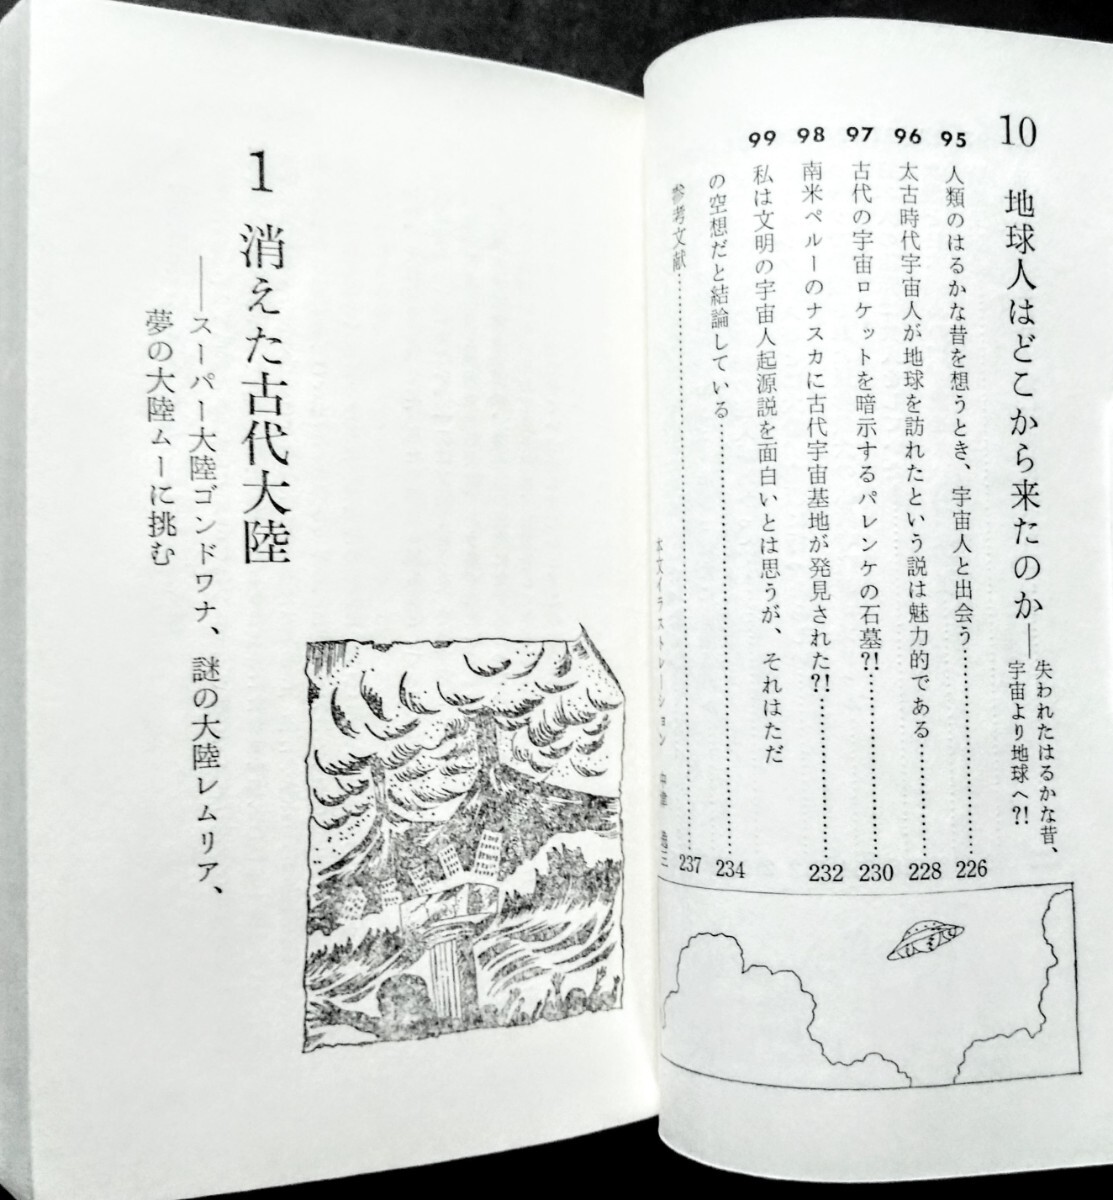 10 地球人はどこから来たのか――失われたはるかな昔、
宇宙より地球へ?!
95 人類のはるかな昔を想うとき、宇宙人と出会う…………226
96 太古時代宇宙人が地球を訪れたという説は魅力的である…………228
97 古代の宇宙ロケットを暗示するパレンケの石墓?!…………230
98 南米ペルーのナスカに古代宇宙基地が発見された?!…………232
99 私は文明の宇宙人起源説を面白いとは思うが、それはただ
の空想だと結論している…………234
参考文献…………237
本文イラストレーション
1 消えた古代大陸
――スーパー大陸ゴンドワナ、謎の大陸レムリア、
夢の大陸ムーに挑む